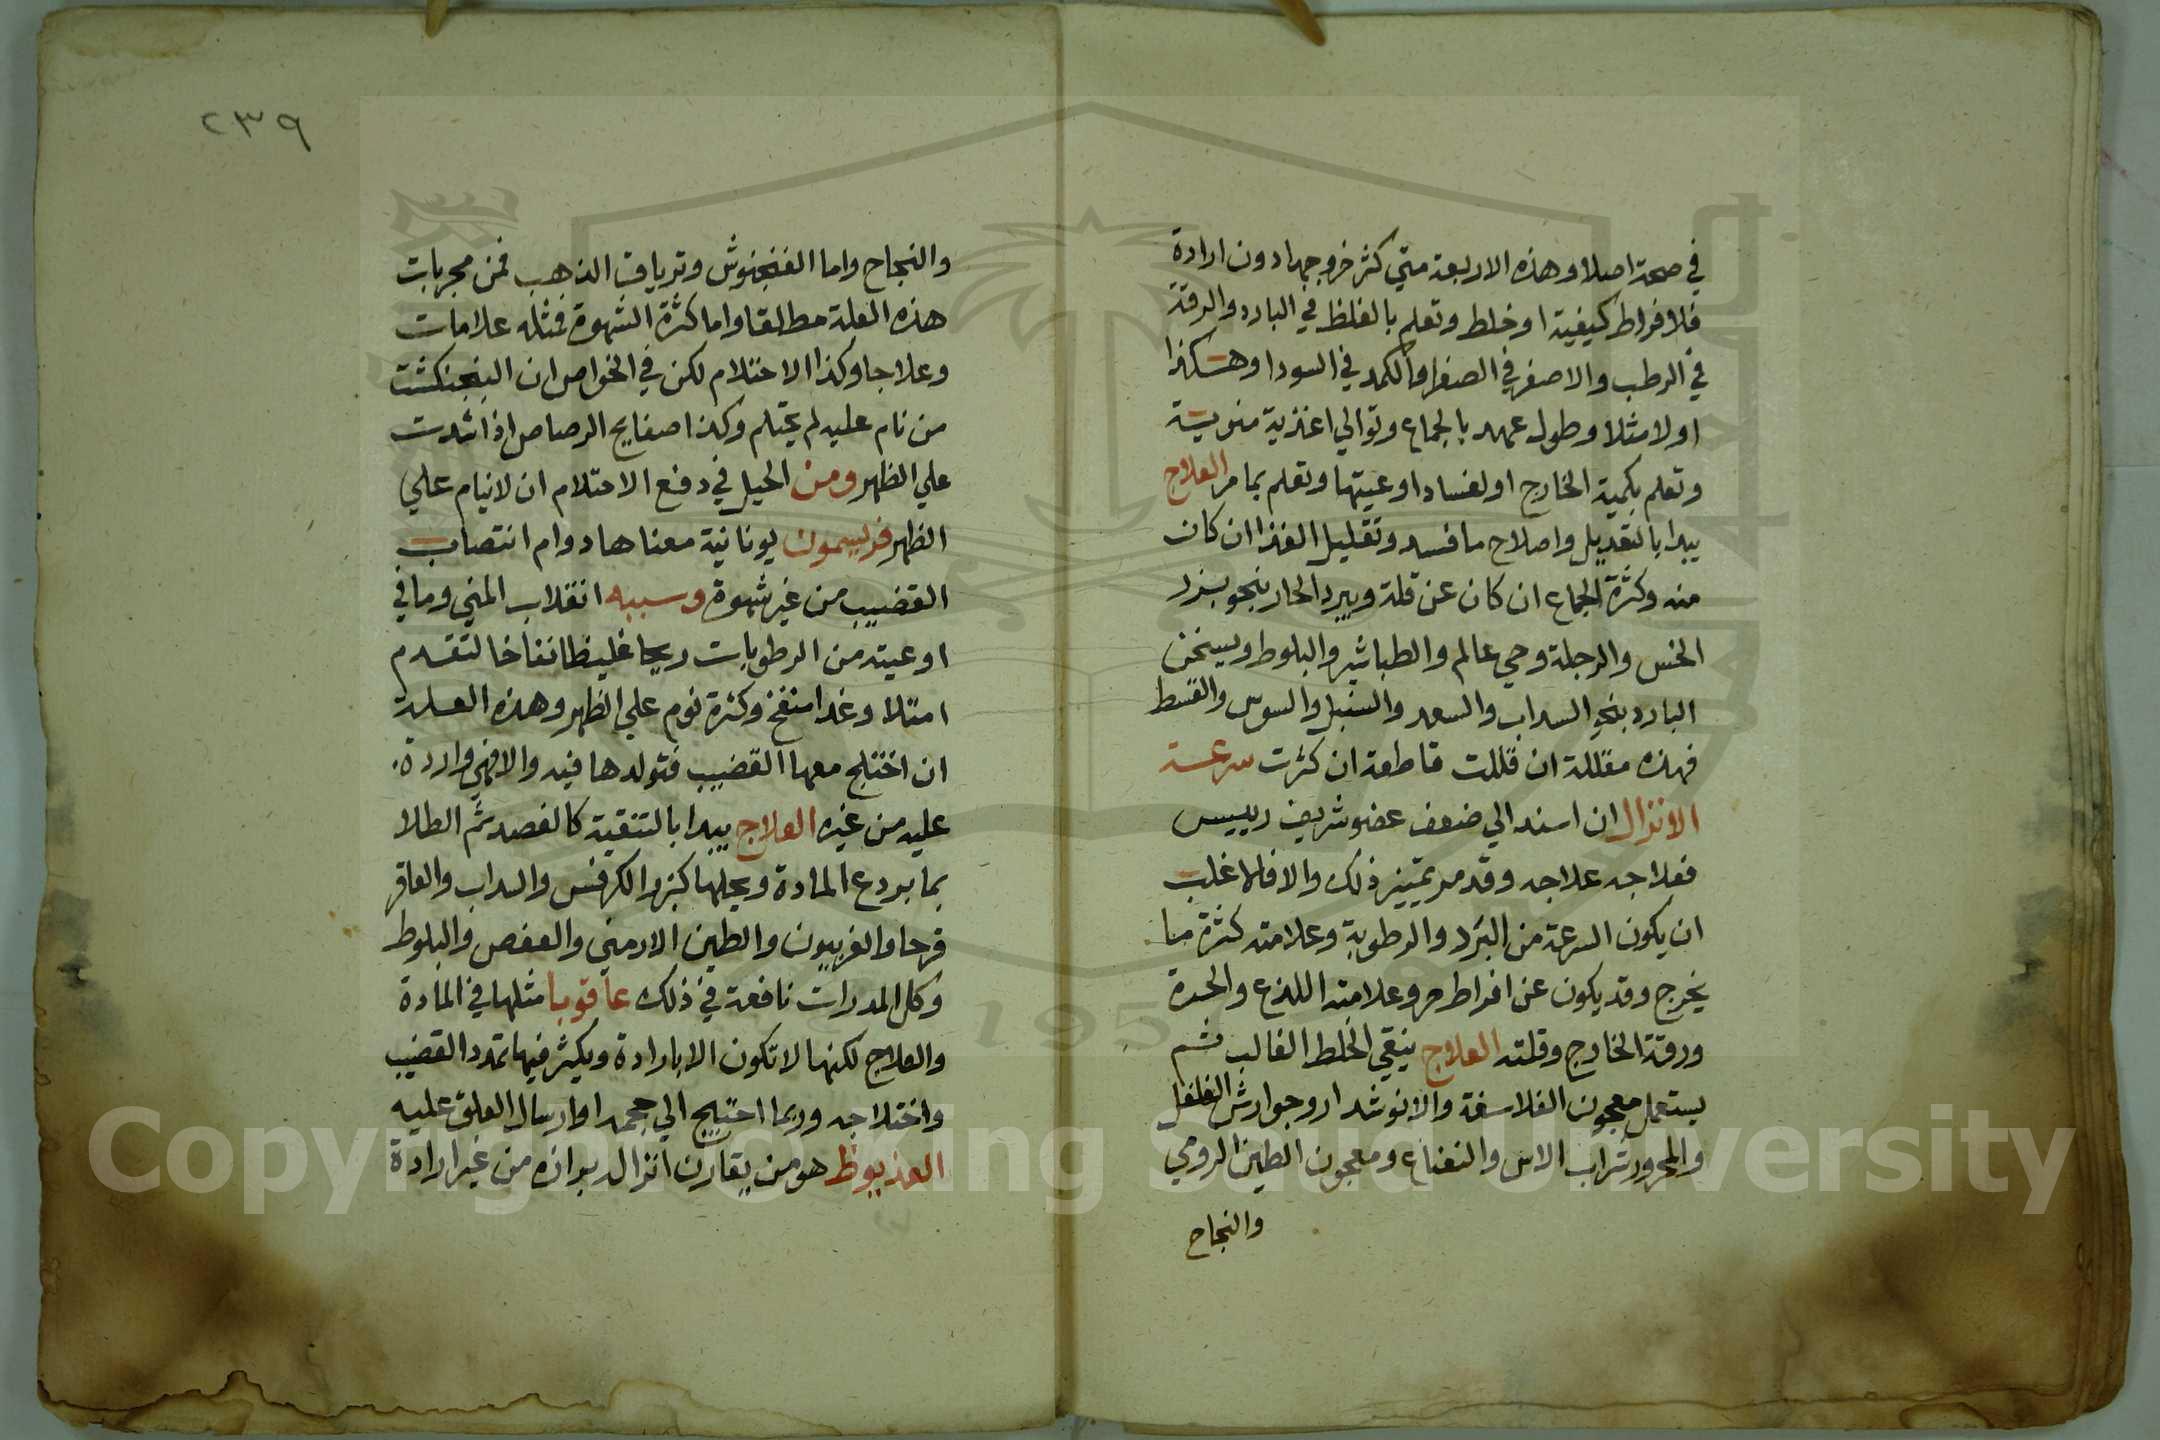 في صحة اصلا وهذه الاربعة متي كثر خروجها دون ارادة
فلافراط كيفية او خلط وتعلم بالغلظ في البارد والرقة
في الرطب والاصفر في الصفرا والكمد في السودا وهكذا
اولامتلا وطول عهد بالجماع وتوالي اغذية منوية
وتعلم بكمية الخارج اولفساد اوعيتها وتعلم بما مر العلاج
يبدا بالتعديل واصلاح ما فسد وتقليل الغذا ان كان
منه وكثرة الجماع ان كان عن قلة ويبرد الحار بنحو بزر
الخس والرجلة وحي عالم والطباشير والبلوط ويسخن
البارد بنحو السداب والسعد والسنبل والسوس والقسط
فهذه مقللة ان قللت قاطعة ان كثرت سرعة
الانزال ان اسند الي ضعف عضو شريف رييس
فعلاجه علاجه وقد مر تمييز ذلك والا فالاغلب
ان يكون السرعة من البرد والرطوبة وعلامته كثرة ما
يخرج وقد يكون عن افراط حر وعلامته اللذع والحدة
ورقة الخارج وقلته العلاج ينقي الخلط الغالب ثم
يستعمل معجون الفلاسفة والانوشدارو وجوارش الفلفل
والمحرور شراب الاس والنعناع ومعجون الطين الرومي
والنجاح
٢٣٩
والنجاح واما الفنجنوش وترياق الذهب فمن مجربات
هذه العلة مطلقا واما كثرة الشهوة فمثله علامات
وعلاجا وكذا الاحتلام لكن في الخواص ان البنجنكشت
من نام عليه لم يحتلم وكذا صفايح الرصاص اذا شدت
علي الظهر ومن الحيل في دفع الاحتلام ان لاينام علي
الظهر فريسمون يونانية معناها دوام انتصاب
القضيب من غير شهوة وسببه انقلاب المني وما في
اوعيته من الرطوبات ريحا غليظا نفاخا لتقدم
امتلا وغذا منفخ وكثرة نوم علي الظهر وهذه العلة
ان اختلج معها القضيب فتولدها فيه والا فهي واردة
عليه من غيره العلاج يبدا بالتنقية كالفصد ثم الطلا
بما يردع المادة ويحلها كبزر الكرفس والسداب والعاقر
قرحا والفربيون والطين الارمني والعفص والبلوط
وكل المدرات نافعة في ذلك عاقوبا مثلها في المادة
والعلاج لكنها لا تكون الا بارادة ويكثر فيها تمدد القضيب
واختلاجه وربما احتيج الي حجمه او ارسال العلق عليه
العذيوط هو من يقارن انزاله برازه من غير ارادة
Copyright © King Saud University
195